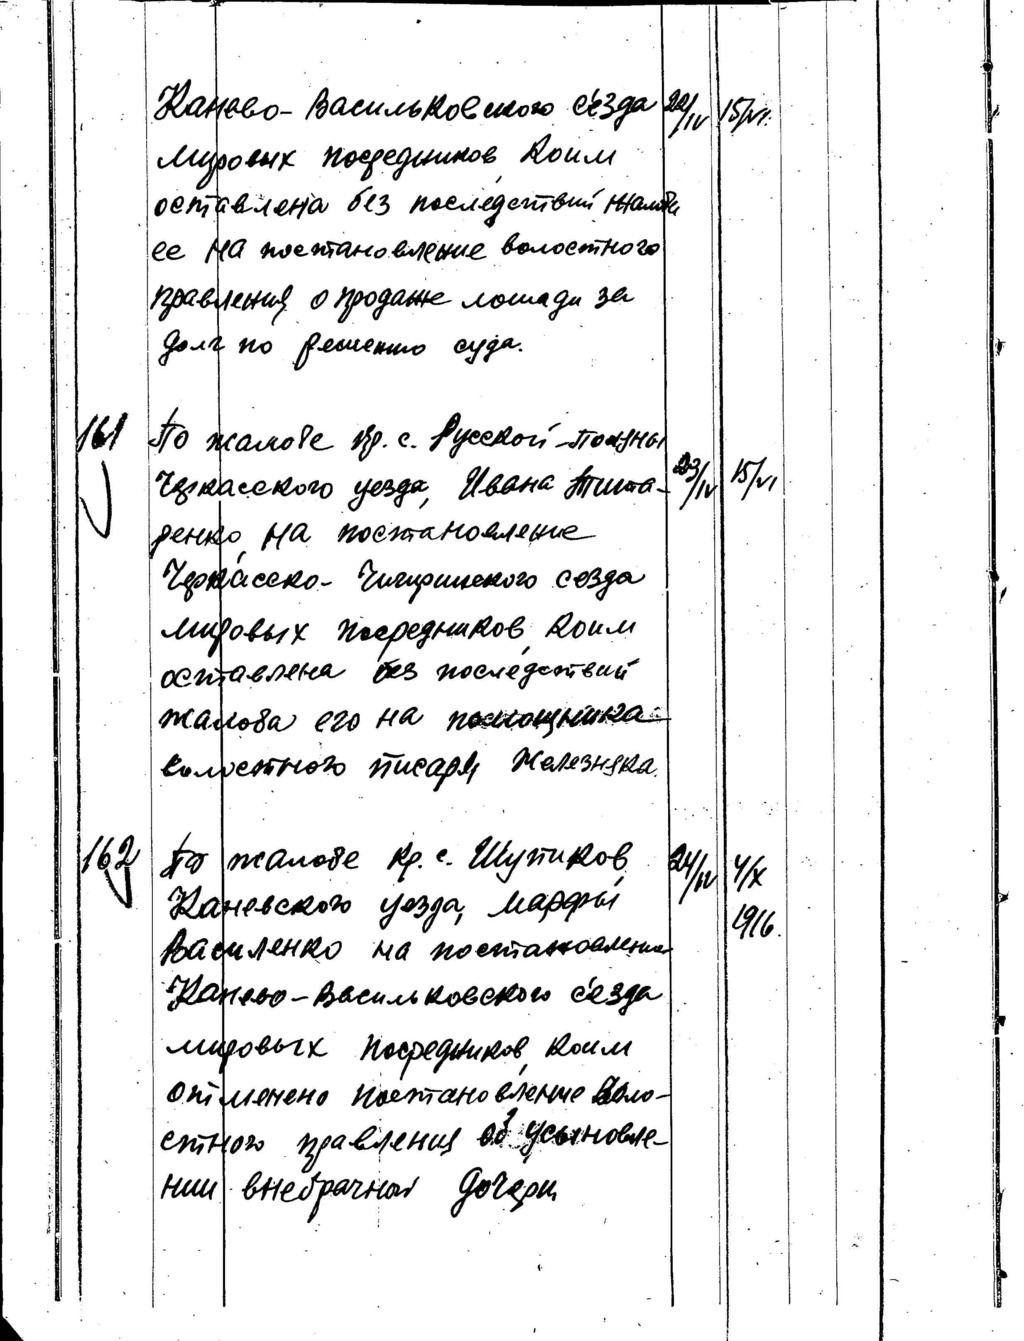 Канево-Васильковского с'езда 22/IV 15/VI.
мировых посредников, коим
оставлена без последствий жалоба
ее на постановление волостного
правления о продаже лошади за
долг по решению суда.
161 По жалобе кр. с. Русской-Поляны
Черкасского уезда, Ивана Тита- 23/IV 15/VI
ренко на постановление
Черкасско-Чигиринского с'езда
мировых посредников, коим
оставлена без последствий
жалоба его на помощника
волостного писаря Железняка.
162 По жалобе кр. с. Шупиков, 24/IV 4/X
Каневского уезда, Марфы 1916.
Василенко на постановление
Канево-Васильковского с'езда
мировых посредников, коим
отменено постановление воло-
стного правления об усыновле-
нии внебрачной дочери